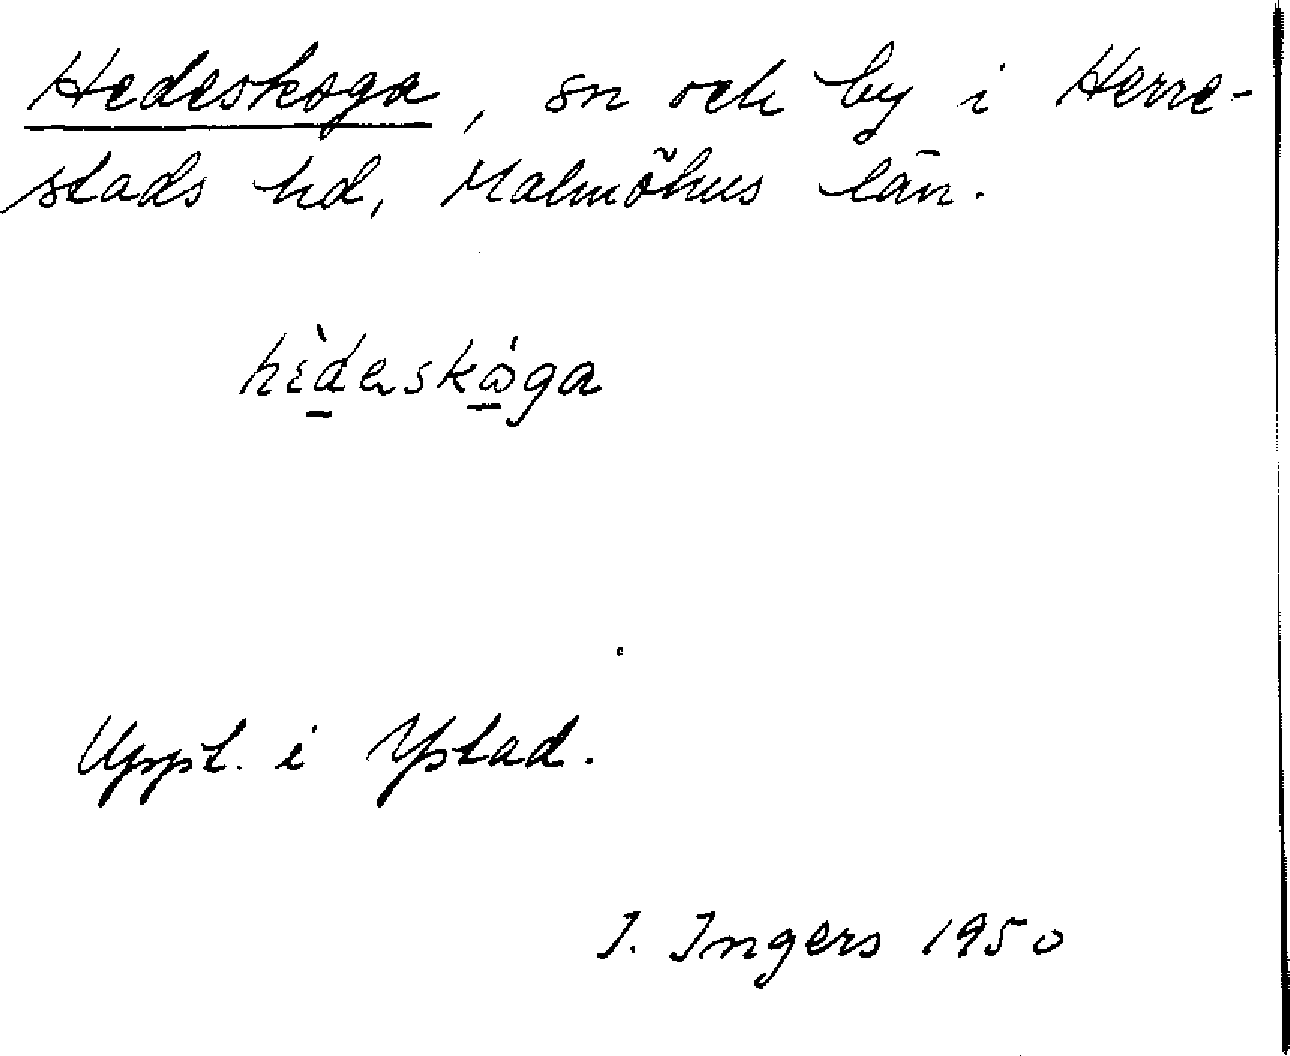 Hedeskoga, sn och by i Herre-
stads hd, Malmöhus län.
hìdeskóga
Uppt. i Ystad.
I. Ingers 1950